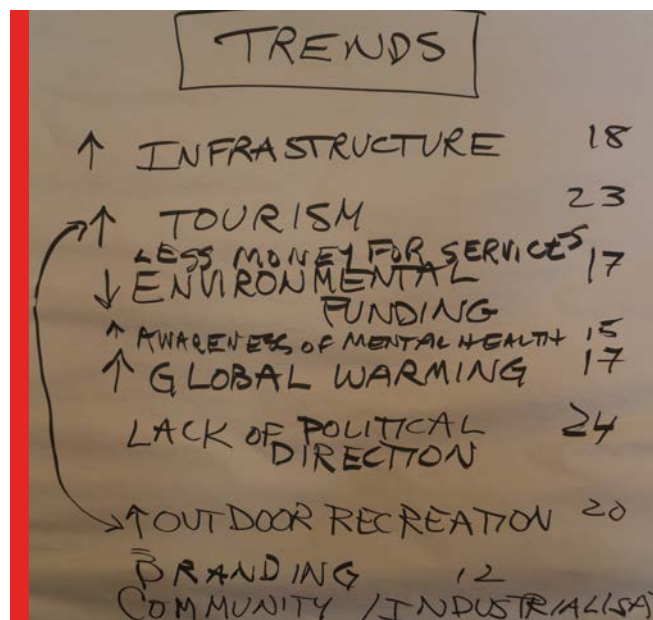 TRENDS
↑ INFRASTRUCTURE 18
↑ TOURISM 23
LESS MONEY FOR SERVICES
↓ ENVIRONMENTAL 17
FUNDING
↑ AWARENESS OF MENTAL HEALTH 15
↑ GLOBAL WARMING 17
LACK OF POLITICAL 24
DIRECTION
↑ OUTDOOR RECREATION 20
BRANDING 12
COMMUNITY / INDUSTRIALISA